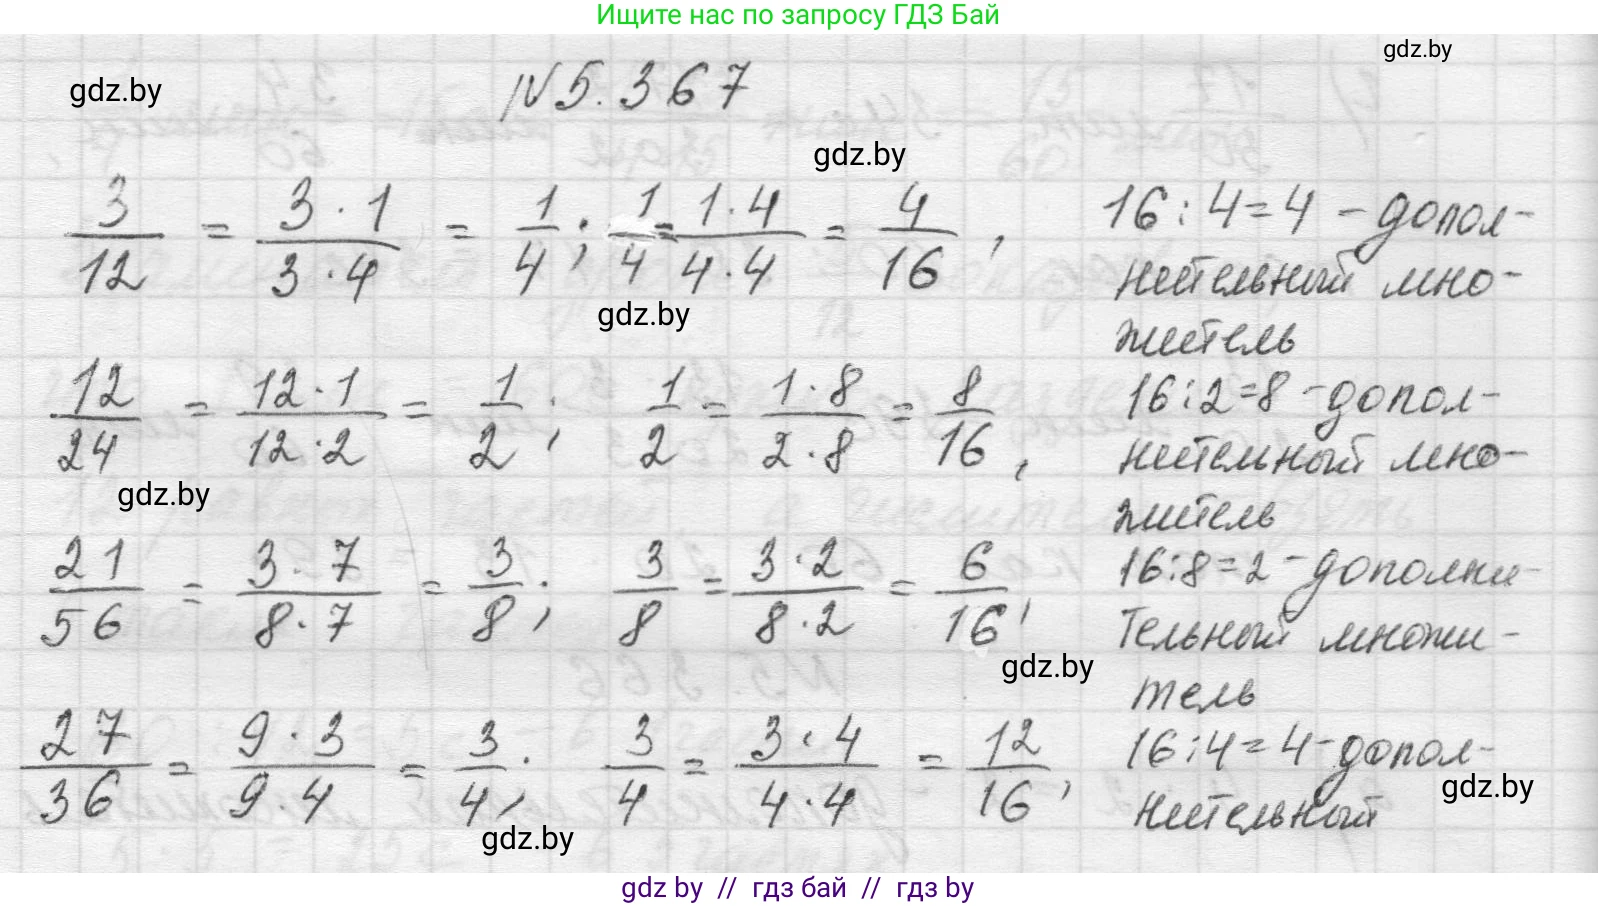 Ищите нас по запросу ГДЗ Бай
gdz.by
gdz.by
№5.367
gdz.by
3/12 = 3·1/3·4 = 1/4; 1/4 = 1·4/4·4 = 4/16, 16:4=4 - допол-
нительный мно-
gdz.by
житель
12/24 = 12·1/12·2 = 1/2; 1/2 = 1·8/2·8 = 8/16, 16:2=8 - допол-
нительный мно-
gdz.by
житель
21/56 = 3·7/8·7 = 3/8; 3/8 = 3·2/8·2 = 6/16, 16:8=2 - дополни-
тельный множи-
gdz.by
тель
27/36 = 9·3/9·4 = 3/4; 3/4 = 3·4/4·4 = 12/16, 16:4=4 - допол-
gdz.by
нительный
gdz.by
gdz by // гдз бай // gdz by